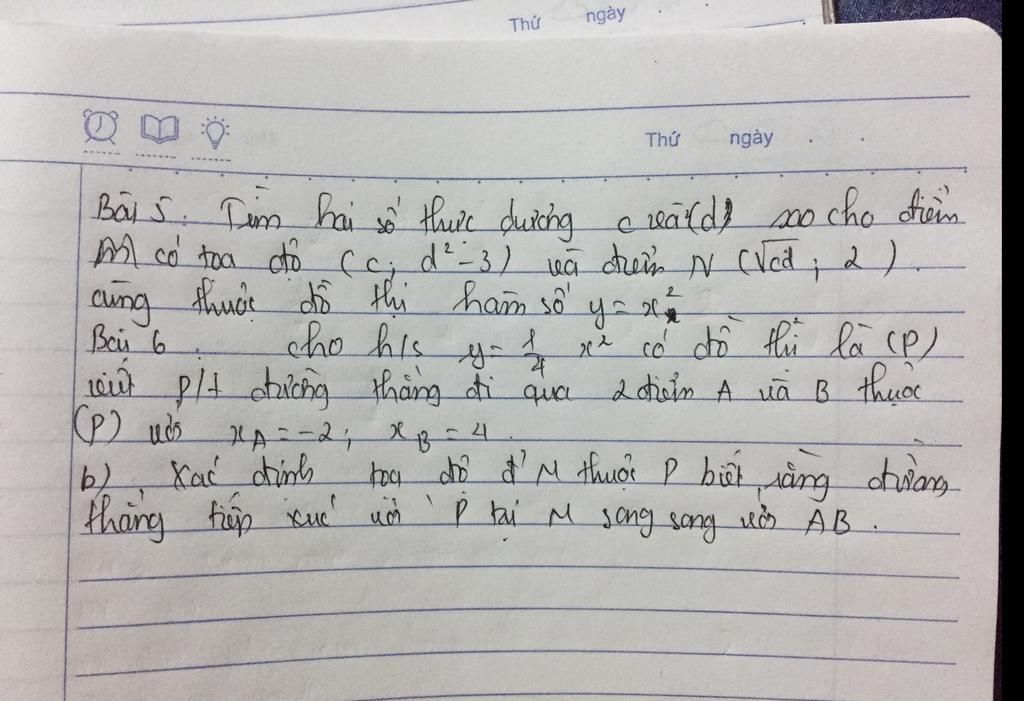 Thứ ngày
Thứ ngày
Bài 5. Tìm hai số thực dương c và (d) sao cho điểm
M có toạ độ (c; d² - 3) và điểm N (√cd; 2).
cùng thuộc đồ thị hàm số y = x²
Bài 6. cho h/s y = 1/4 x² có đồ thị là (P)
viết p/t đường thẳng đi qua 2 điểm A và B thuộc
(P) với x_A = -2; x_B = 4.
b) Xác định toạ độ đ' M thuộc P biết rằng đường
thẳng tiếp xúc với P tại M song song với AB.